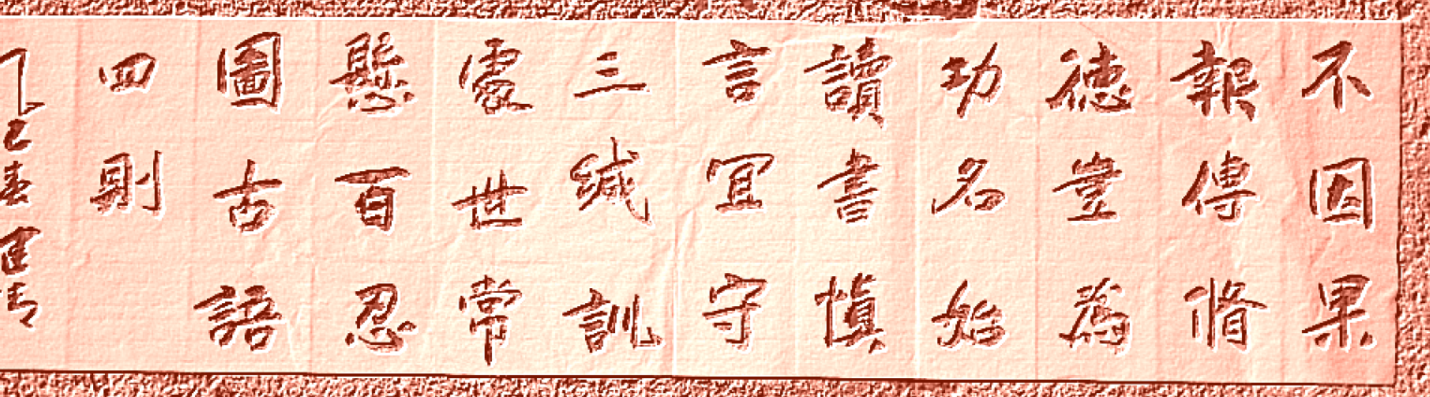 不因果
報傳脩
德豈為
功名始
讀書慎
言宜守
三緘訓
處世常
懸百忍
圖古語
四則
巳春